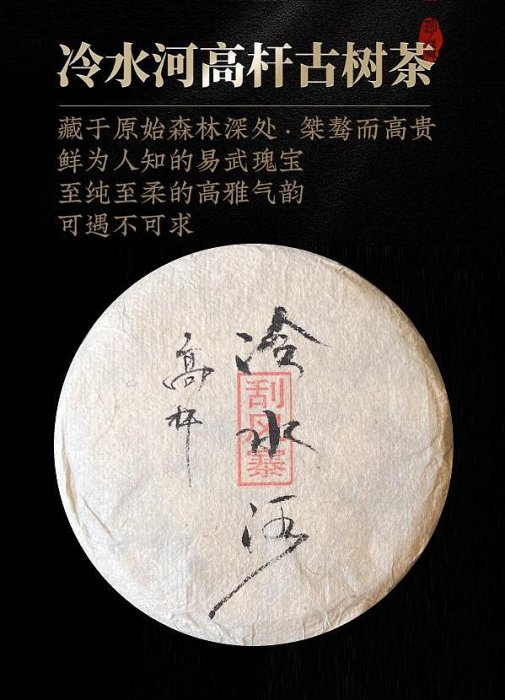 冷水河高杆古树茶
藏于原始森林深处·桀骜而高贵
鲜为人知的易武瑰宝
至纯至柔的高雅气韵
可遇不可求
冷水河
高杆
刮风寨